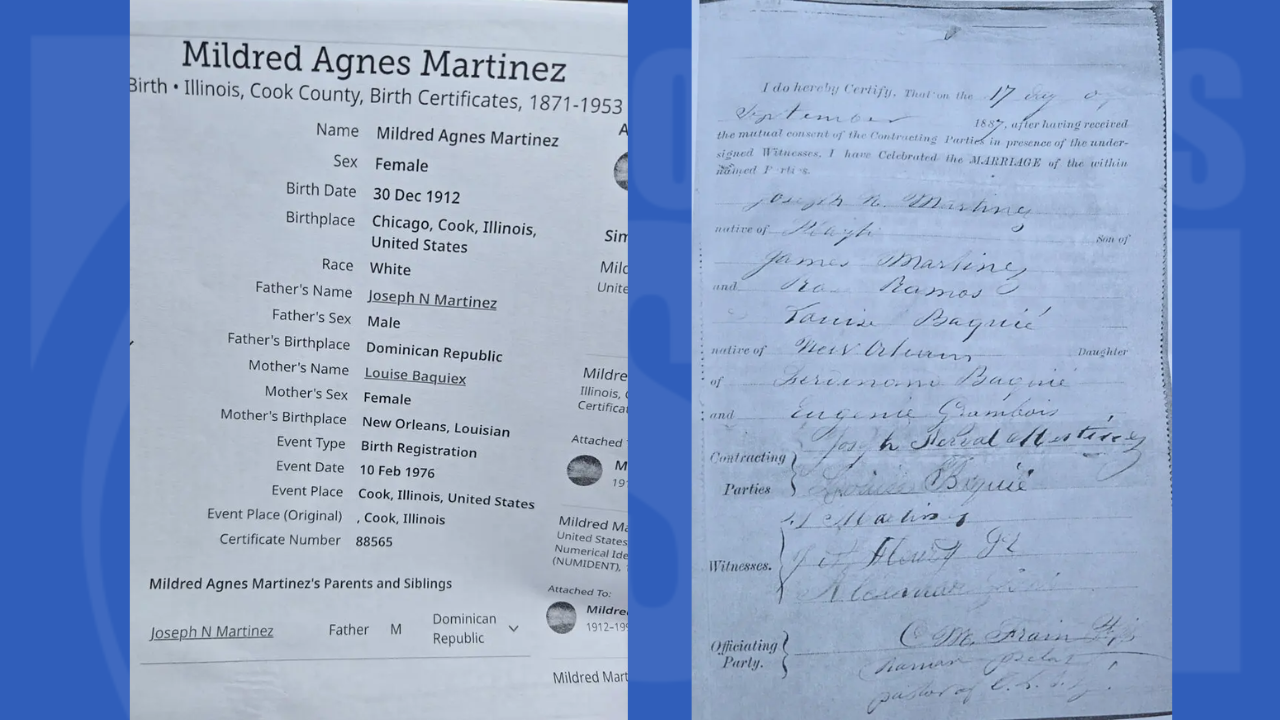 Mildred Agnes Martinez
Birth • Illinois, Cook County, Birth Certificates, 1871-1953
Name Mildred Agnes Martinez
Sex Female
Birth Date 30 Dec 1912
Birthplace Chicago, Cook, Illinois,
United States
Race White
Father's Name Joseph N Martinez
Father's Sex Male
Father's Birthplace Dominican Republic
Mother's Name Louise Baquiex
Mother's Sex Female
Mother's Birthplace New Orleans, Louisian
Event Type Birth Registration
Event Date 10 Feb 1976
Event Place Cook, Illinois, United States
Event Place (Original) , Cook, Illinois
Certificate Number 88565
Mildred Agnes Martinez's Parents and Siblings
Joseph N Martinez Father M Dominican
Republic
A
Sim
Milc
Unite
Mildre
Illinois, C
Certificat
Attached
M
19
Mildred Ma
United States
Numerical Ide
(NUMIDENT),
Attached To:
Mildre
1912-199
Mildred Mart
I do hereby Certify, That on the 17
September 1887, after having received
the mutual consent of the Contracting Parties in presence of the under-
signed Witnesses, I have Celebrated the MARRIAGE of the within
named
Joseph N. Martinez
native of Son of
James Martinez
and Ramos
Louise Baquié
native of New Orleans Daughter
of Baquié
and Eugenie Grambois
Contracting
Parties
Joseph Martinez
Louise Baquié
Witnesses.
Martinez
Officiating
Party.